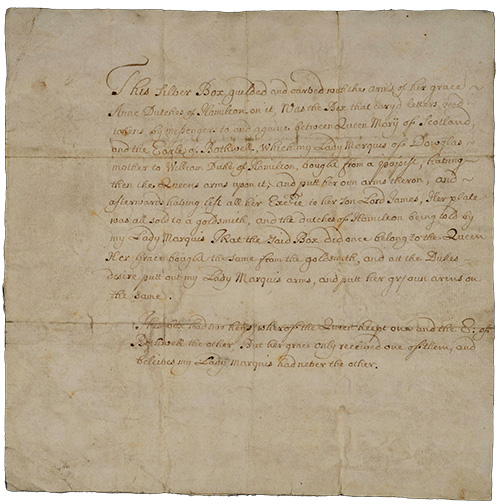 This Silver Box, guilded and carved with the arms of her grace
Anne Dutches of Hamilton on it, Was the Box that caryd letters and
tokens by messengers to and againe between Queen Mary of Scotland,
and the Earle of Bothwell, which my Lady Marquis of Dowglas
mother to William Duke of Hamilton, bought from a papist, haveing
then the Queens arms upon it, and putt her own arms theron, and
afterwards haveing left all her to her son Lord James, Her plate
was all sold to a goldsmith, and the dutches of Hamilton being told by
my Lady Marquis That the said Box did once belong to the Queen
Her grace bought the same from the goldsmith, and att the Dukes
desire putt out my Lady Marquis arms, and putt her gr/ own arms on
the same.
This box had two keys, wherof the Queen keept one and the E: of
Bothwell the other But her grace only received one of them, and
beleives my Lady Marquis had never the other.